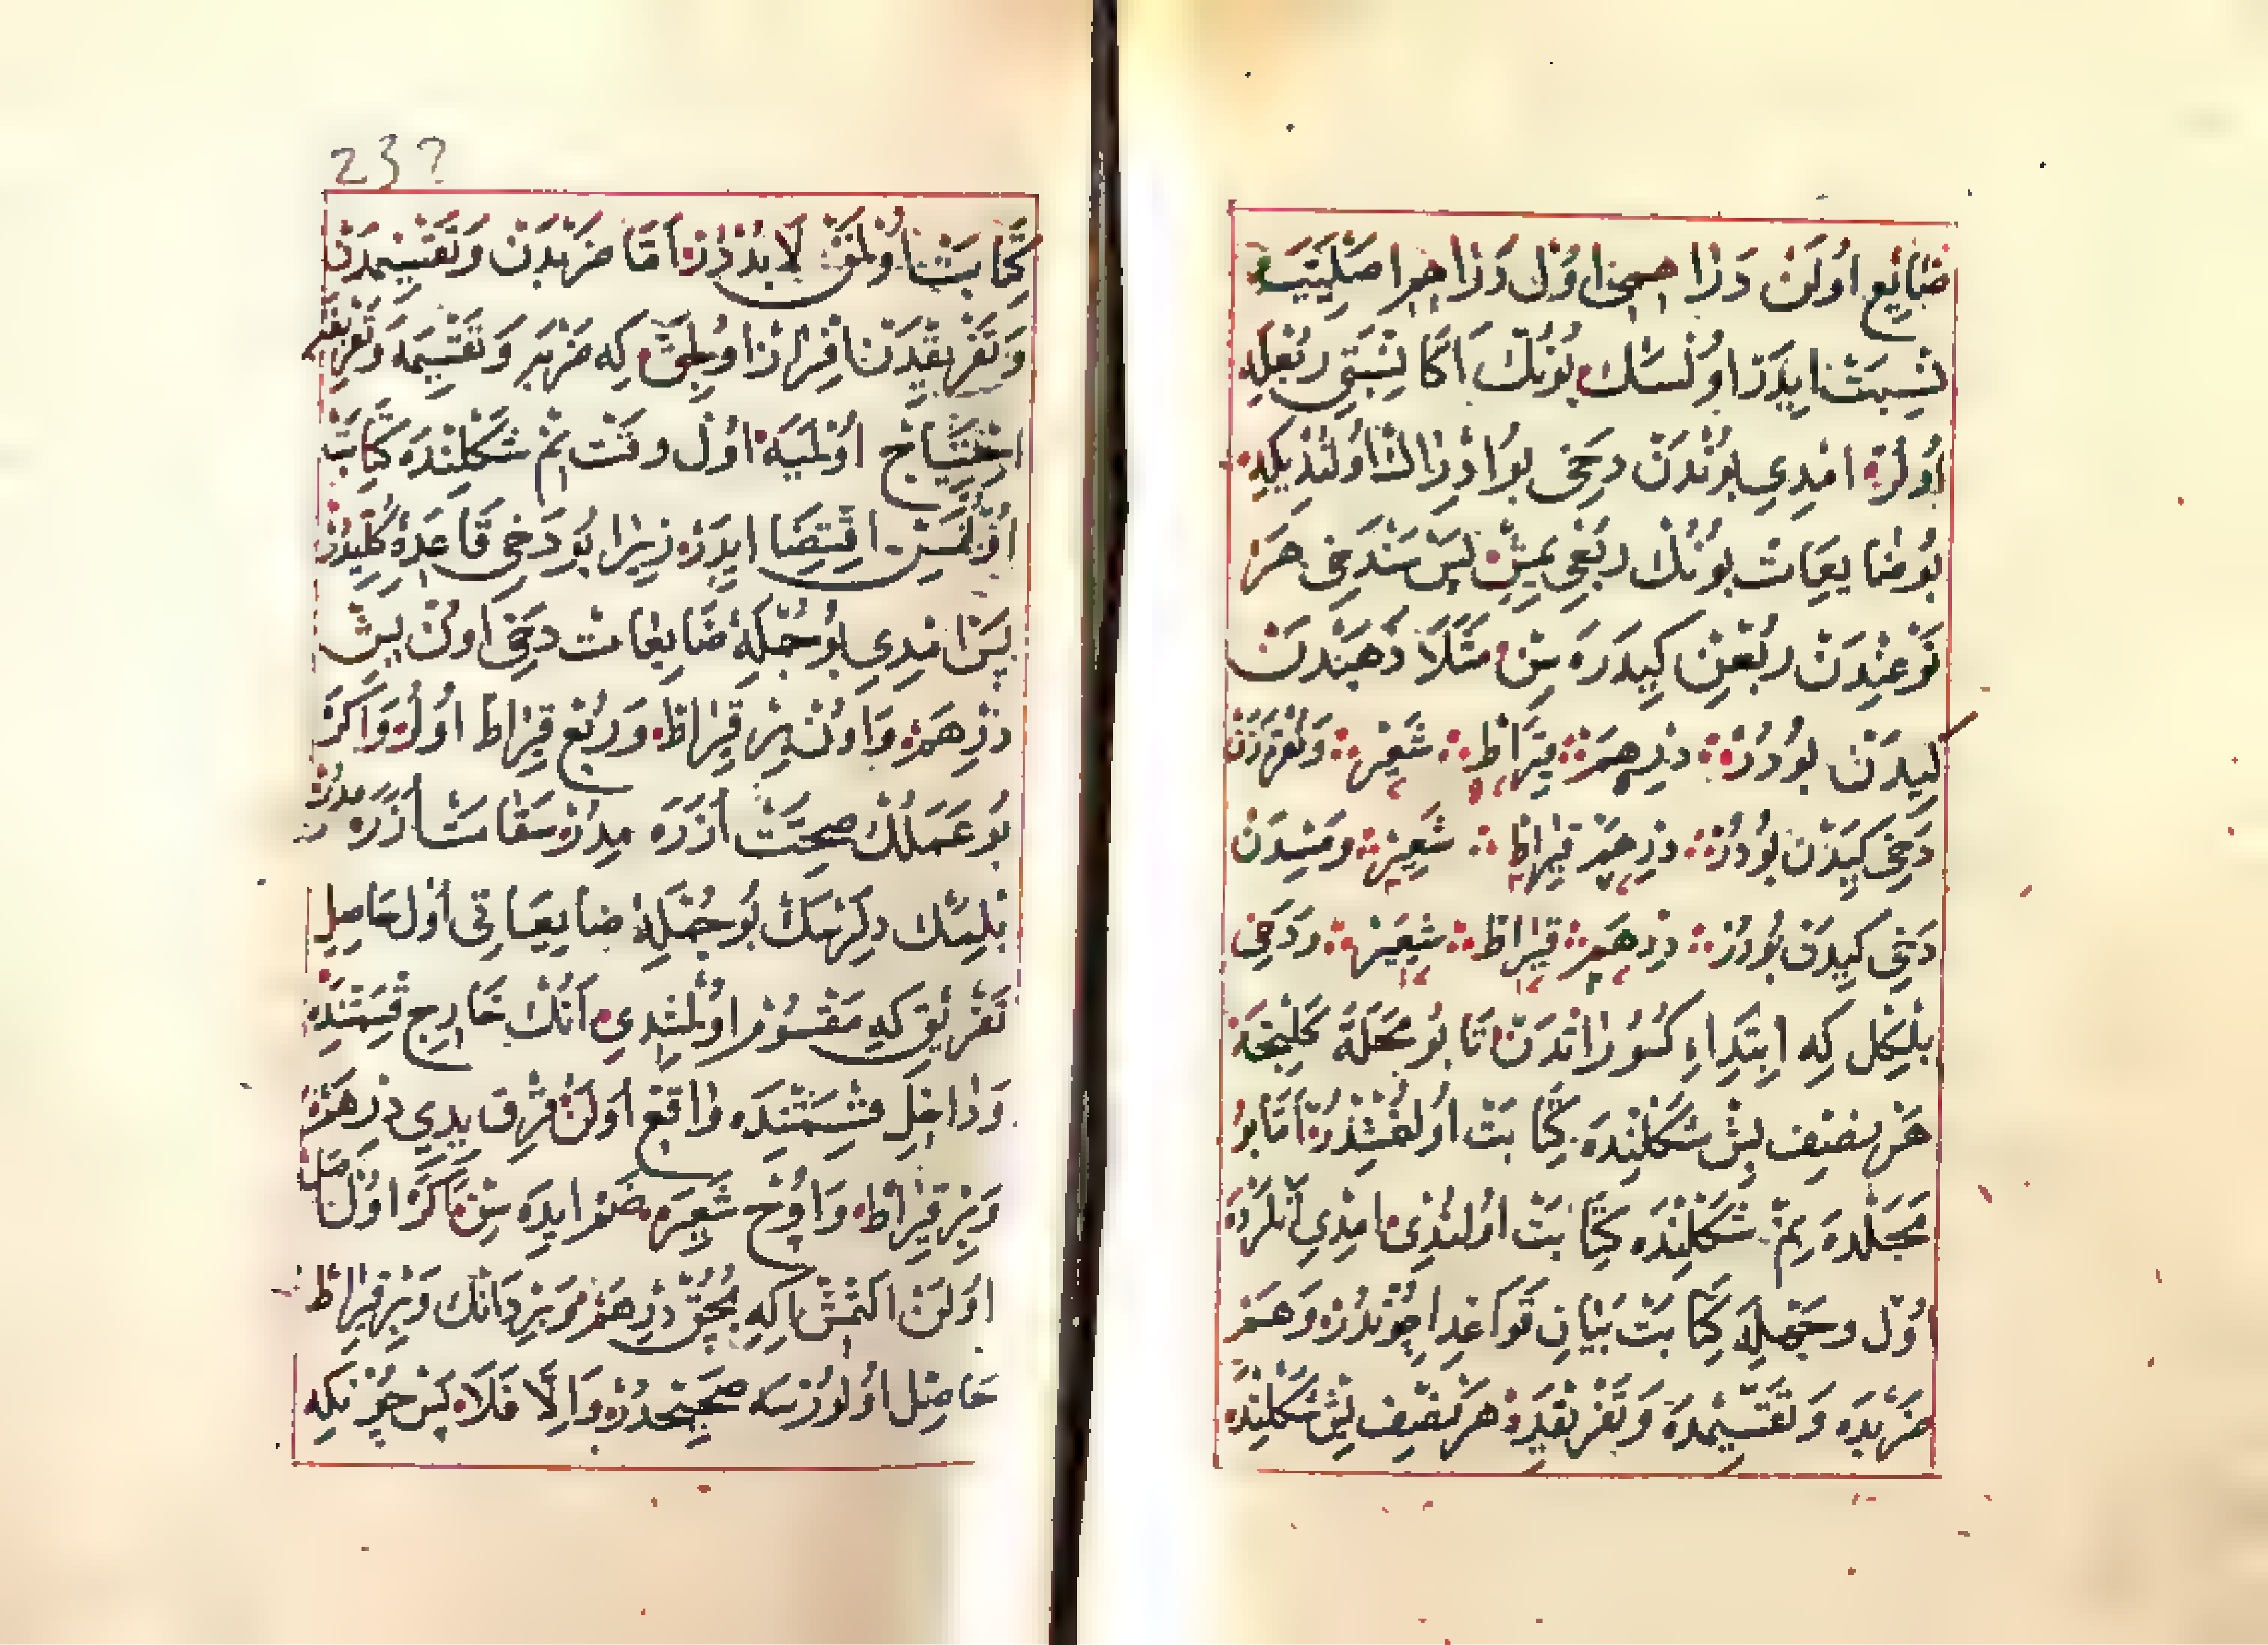 ضَايِع اوُلَن دَرَاهِمِي اوُل دَرَاهِم اصَلِيَّيَه
نِسْبَت ايدَرْ اوُلْسَاكْ بُونُكْ اَكَا نِسْبَتِي رُبْعِله
اوُلُرْ امْدِي بُونْدَنْ دَخِي بُو ادْرَاك اوُلُنْدِيكِه
بُو ضَايِعَات بُونُكْ رُبْعِي يِمِشْ پَسْ سَنْدَخِي هَرْ
نَوْعِنْدَنْ رُبْعِنْ كِيدَرَه سِنْ مَثَلَا ذَهَبْدَنْ
كِيدَنْ بُودُرْ دِرْهَمْ قِيرَاطْ شَعِيرْ
دَخِي كِيدَنْ بُودُرْ دِرْهَمْ قِيرَاطْ شَعِيرْ
دَخِي كِيدَنْ بُودُرْ دِرْهَمْ قِيرَاطْ شَعِيرْ وَدَخِي
بِلْكِل كِه ابْتِدَاءِ كُسُورَاتْدَنْ تَا بُو مَحَلَّه كَلِنْجَه
هَرْ نِصْف بِشْ شَكْلِنْدَه كِتَابَتْ اوُلُنْمِشْدُرْ اَمَّا بُو
مَحَلْدَه يِرْمْ شَكْلِنْدَه كِتَابَتْ اوُلُنْدِي امْدِي اَنْلَرْدَه
اوُل وَجْهِلَه كِتَابَتْ بَيَانِ قَوَاعِد اِچُونْدُرْ وَهَمْ
ضَرْبدَه وَتَقْسِيمْدَه وَتَفْرِيقْدَه هَرْ نِصْف بِشْ شَكْلِنْدَه
232
كِتَابَتْ اوُلُنْمَقْ لَابُدْدُرْ اَمَّا ضَرْبدَنْ وَتَقْسِيمدَنْ
وَتَفْرِيقْدَنْ افْرَازْ اوُلِجَقْ كِه ضَرْبَه وَتَقْسِيمَه وَتَفْرِيقَه
احْتِيَاجْ اوُلْمَيَه اوُل وَقْت يِرْمْ شَكْلِنْدَه كِتَابَتْ
اوُلُنْمَسِنْ اقْتِضَا ايدَرْ زِيرَا بُو دَخِي قَاعِدَهٔ كُلِّيَّدُرْ
پَسْ امْدِي بُو جُمْلَهٔ ضَايِعَاتْ دَخِي اوُنْ بِشْ
دِرْهَمْ وَاوُنْ بِرْ قِيرَاطْ وَرُبْع قِيرَاطْ اوُلُرْ وَاَكَرْ
بُو عَمَلُكْ صِحَّتْ اُزَرَه مِدُرْ سَقَامَتْ اُزَرَه مِدُرْ
بِلْمَكْ دِلَرْسَكْ بُو جُمْلَهٔ ضَايِعَاتِي اوُل حَاصِلِ
تَفْرِيقْ كِه مَقْسُومْ اوُلُنْدِي اَنُكْ خَارِجِ قِسْمَتِنْدَه
وَدَاخِلِ قِسْمَتِنْدَه وَاقِعْ اوُلَنْ فَرْق يِدِي دِرْهَمْ
وَبِرْ قِيرَاطْ وَاوُچْ شَعِيرَه ضَمْ ايدَه سِنْ اَكَرْ اوُل
اوُلَنْ الْتْمِشْ اِكِي بُچُقْ دِرْهَمْ وَبِرْ دَانْكْ وَبِرْ قِيرَاطْ
حَاصِل اوُلُورْسَه صَحِيحْدُرْ وَاِلَّا فَلَا پَسْ چُونْكِه